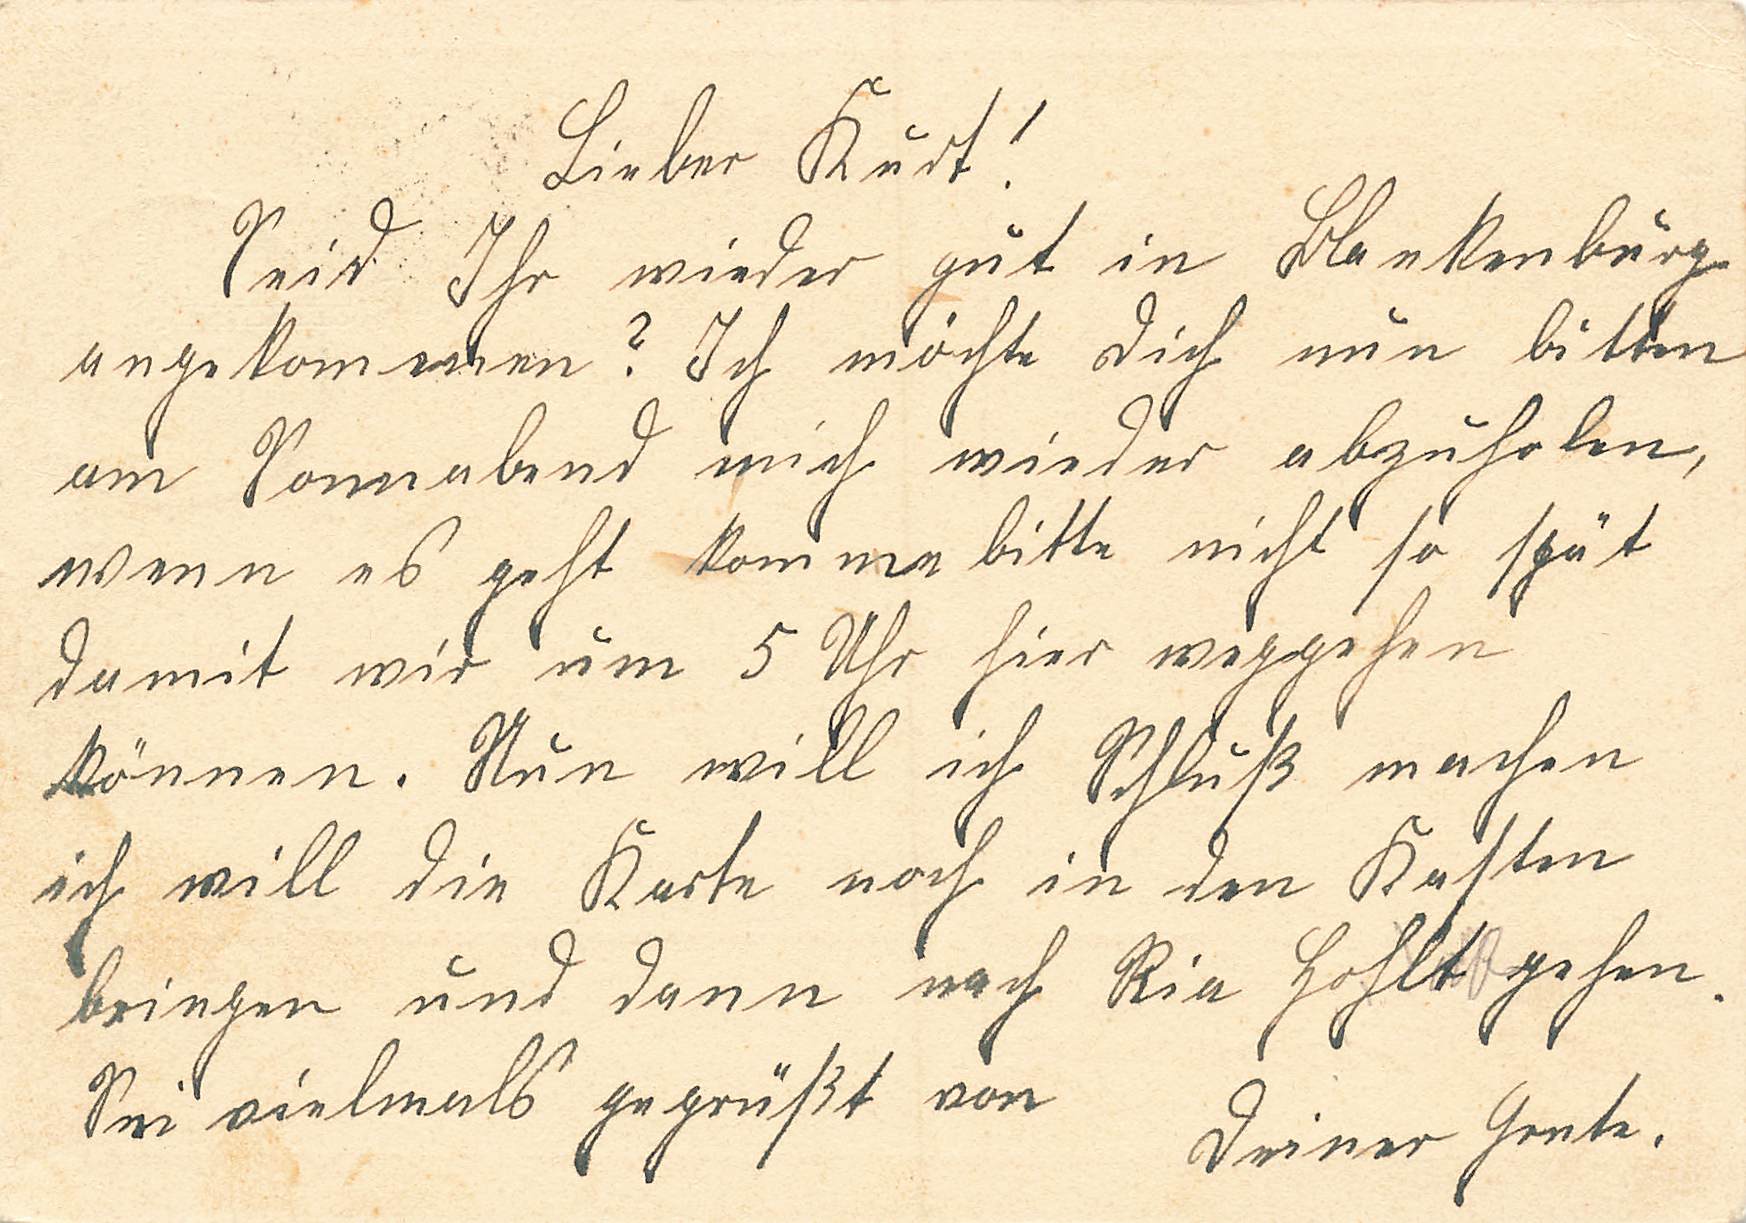 Lieber Kurt!
Seid Ihr wieder gut in Blankenburg
angekommen? Ich möchte Dich nun bitten
am Sonnabend mich wieder abzuholen,
wenn es geht komme bitte nicht so spät
damit wir um 5 Uhr hier weggehen
können. Nun will ich Schluß machen
ich will die Karte noch in den Kasten
bringen und dann nach Ria Hohlt gehen.
Sei vielmals gegrüßt von
Deiner Grete.